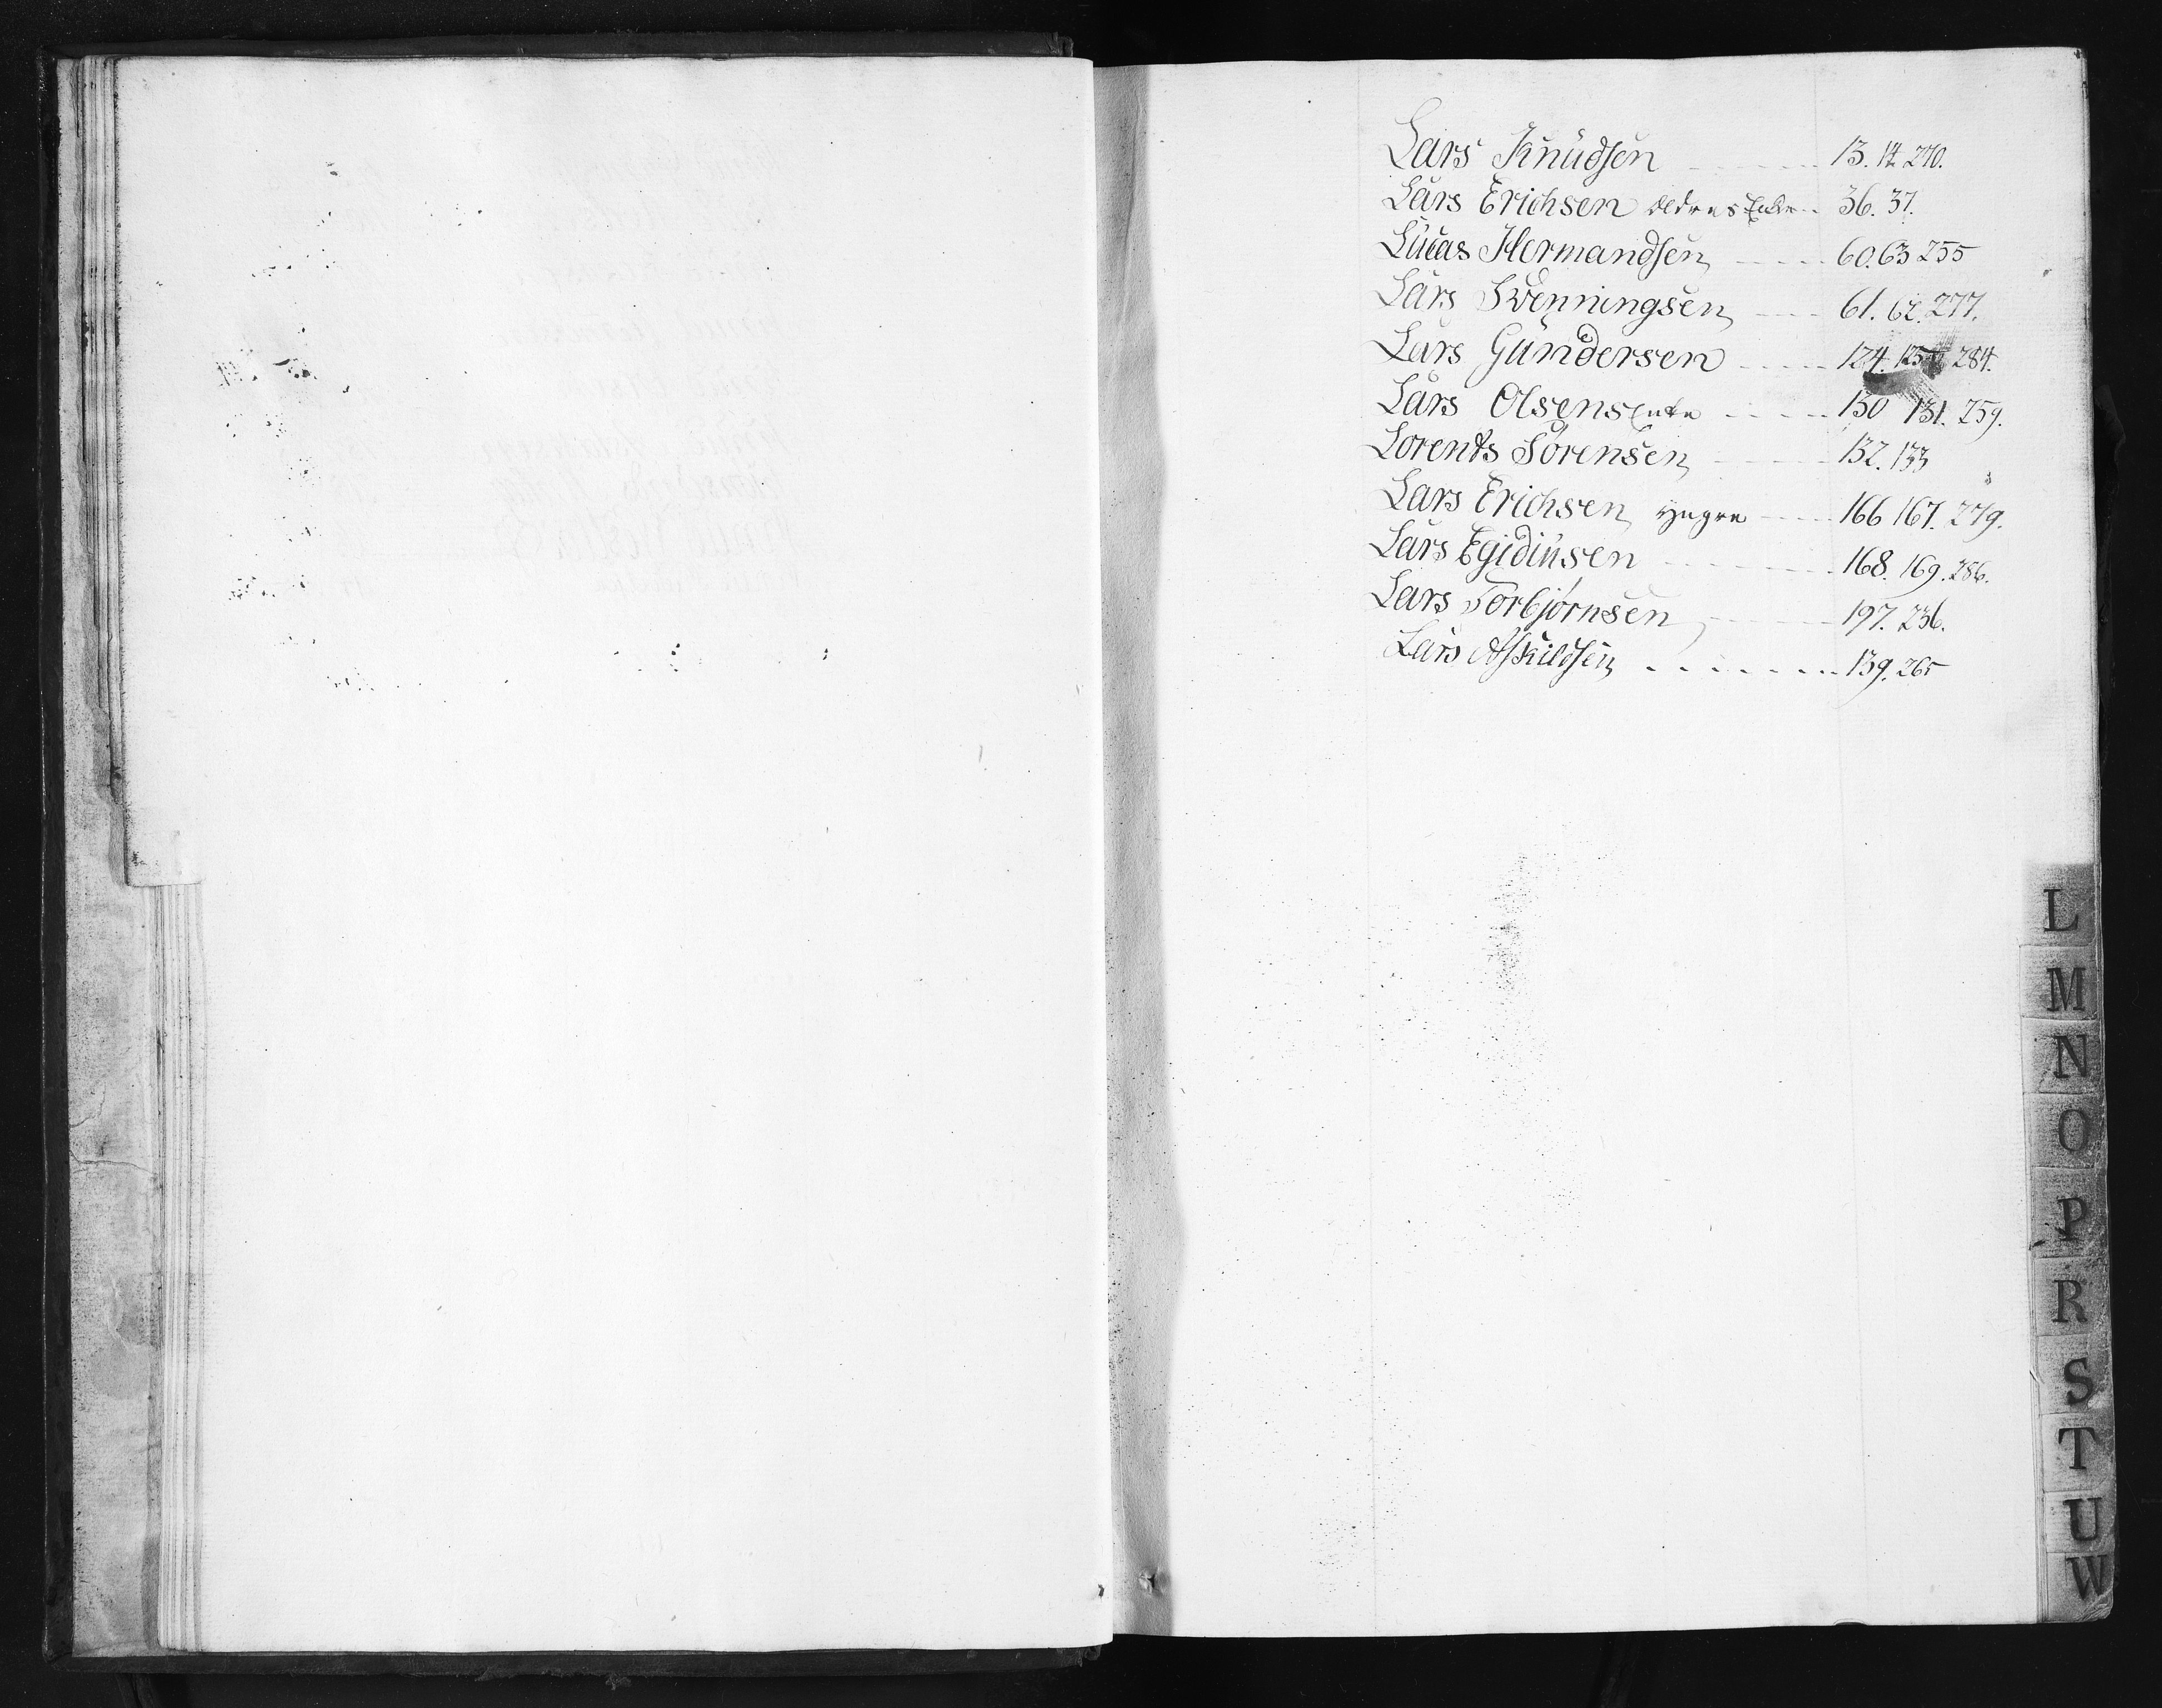 Lars Knudsen - - - - - 13. 14. 270.
Lars Erichsen ældres Enke - - 36. 37.
Lucas Hermandsen - - - - 60. 63 255
Lars Svenningsen - - - 61. 62. 277.
Lars Gundersen - - - - 124. 125 284.
Lars Olsens Enke - - - - 130 131. 259.
Lorents Sørensen - - - - 132. 133
Lars Erichsen yngre - - - 166 167. 279.
Lars Egidiusen - - - - - 168. 169. 286.
Lars Torbjørnsen - - - - 197. 236.
Lars Askildsen - - - - - - - 139. 265
L
M
N
O
P
R
S
T
U
W